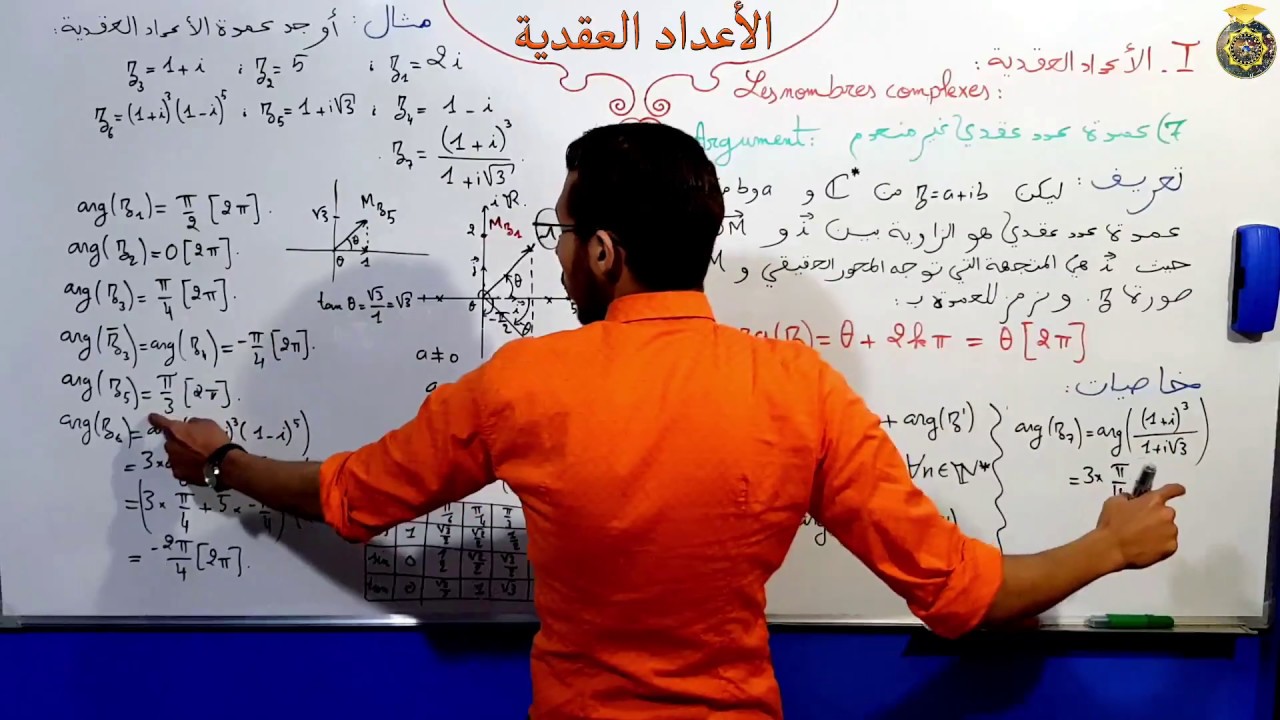 الأعداد العقدية
I. الأعداد العقدية:
Les nombres complexes:
7) عمدة عدد عقدي غير منعدم Argument:
تعريف: ليكن z=a+ib من ℂ* و a و b
عمدة عدد عقدي هو الزاوية بين i⃗ و OM⃗
حيث i⃗ هي المتجهة التي توجه المحور الحقيقي و M
صورة z. ونرمز للعمدة ب:
arg(z) = θ + 2kπ = θ[2π]
خاصيات:
+ arg(z')
∀n∈ℕ*
arg(z₇)=arg((1+i)³/(1+i√3))
= 3×π/4
مثال: أوجد عمدة الأعداد العقدية:
z₁=2i ; z₂=5 ; z₃=1+i
z₄=1-i ; z₅=1+i√3 ; z₆=(1+i)³(1-i)⁵
z₇=(1+i)³/(1+i√3).
arg(z₁)=π/2[2π].
arg(z₂)=0[2π].
arg(z₃)=π/4[2π].
arg(z̄₃)=arg(z₄)=-π/4[2π].
arg(z₅)=π/3[2π].
arg(z₆)= )³(1-i)⁵)
=3×
=(3×π/4+5×-π/4)
=-2π/4[2π].
√3
M z₅
θ
1
tan θ=√3/1=√3
iℝ.
2
M z₁
θ
a≠0
π/6 π/4 π/3
1 √3/2 √2/2 1/2
sin 0 1/2 √2/2 √3/2
tan 0 √3/3 1 √3